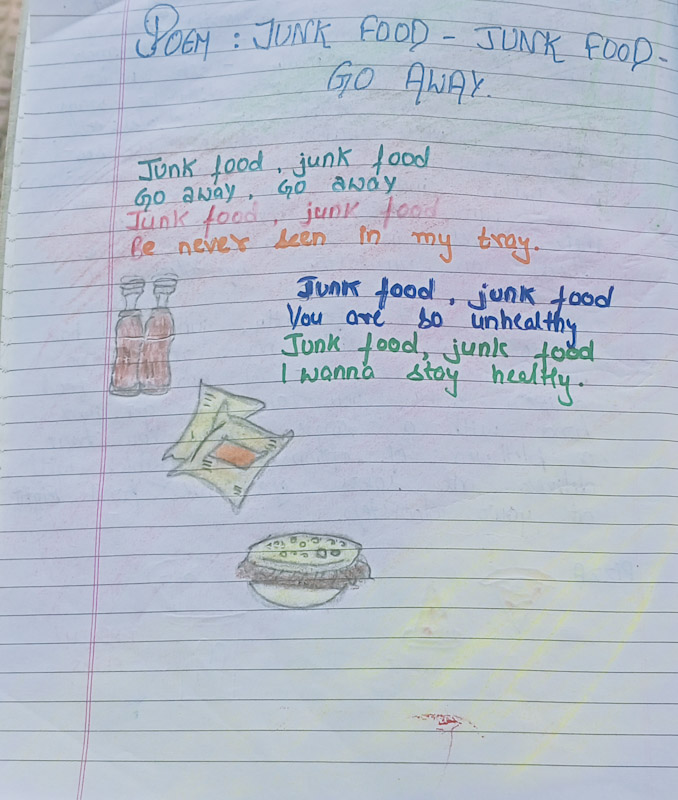 POEM : JUNK FOOD - JUNK FOOD -
GO AWAY.
Junk food , junk food
Go away , Go away
Junk food , junk food
Be never seen in my tray.
Junk food , junk food
You are so unhealthy
Junk food, junk food
I wanna stay healthy.